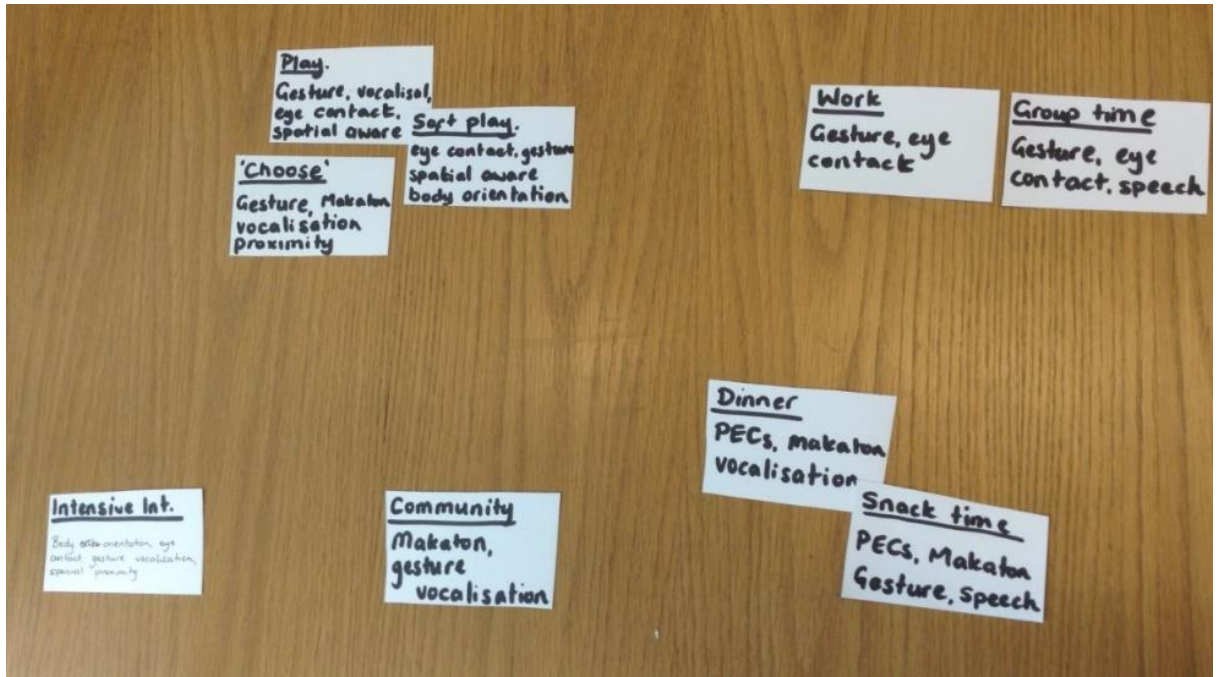 Play.
Gesture, vocalisal,
eye contact,
spatial aware
Soft play.
eye contact, gesture
spatial aware
body orientation
'Choose'
Gesture, Makaton
vocalisation
proximity
Work
Gesture, eye
contack
Group time
Gesture, eye
contact, speech
Dinner
PECs, makaton
vocalisation
Snack time
PECs, Makaton
Gesture, speech
Intensive Int.
Body orientation, eye
contact gesture vocalisation,
spacial proximity
Community
Makaton,
gesture
vocalisation